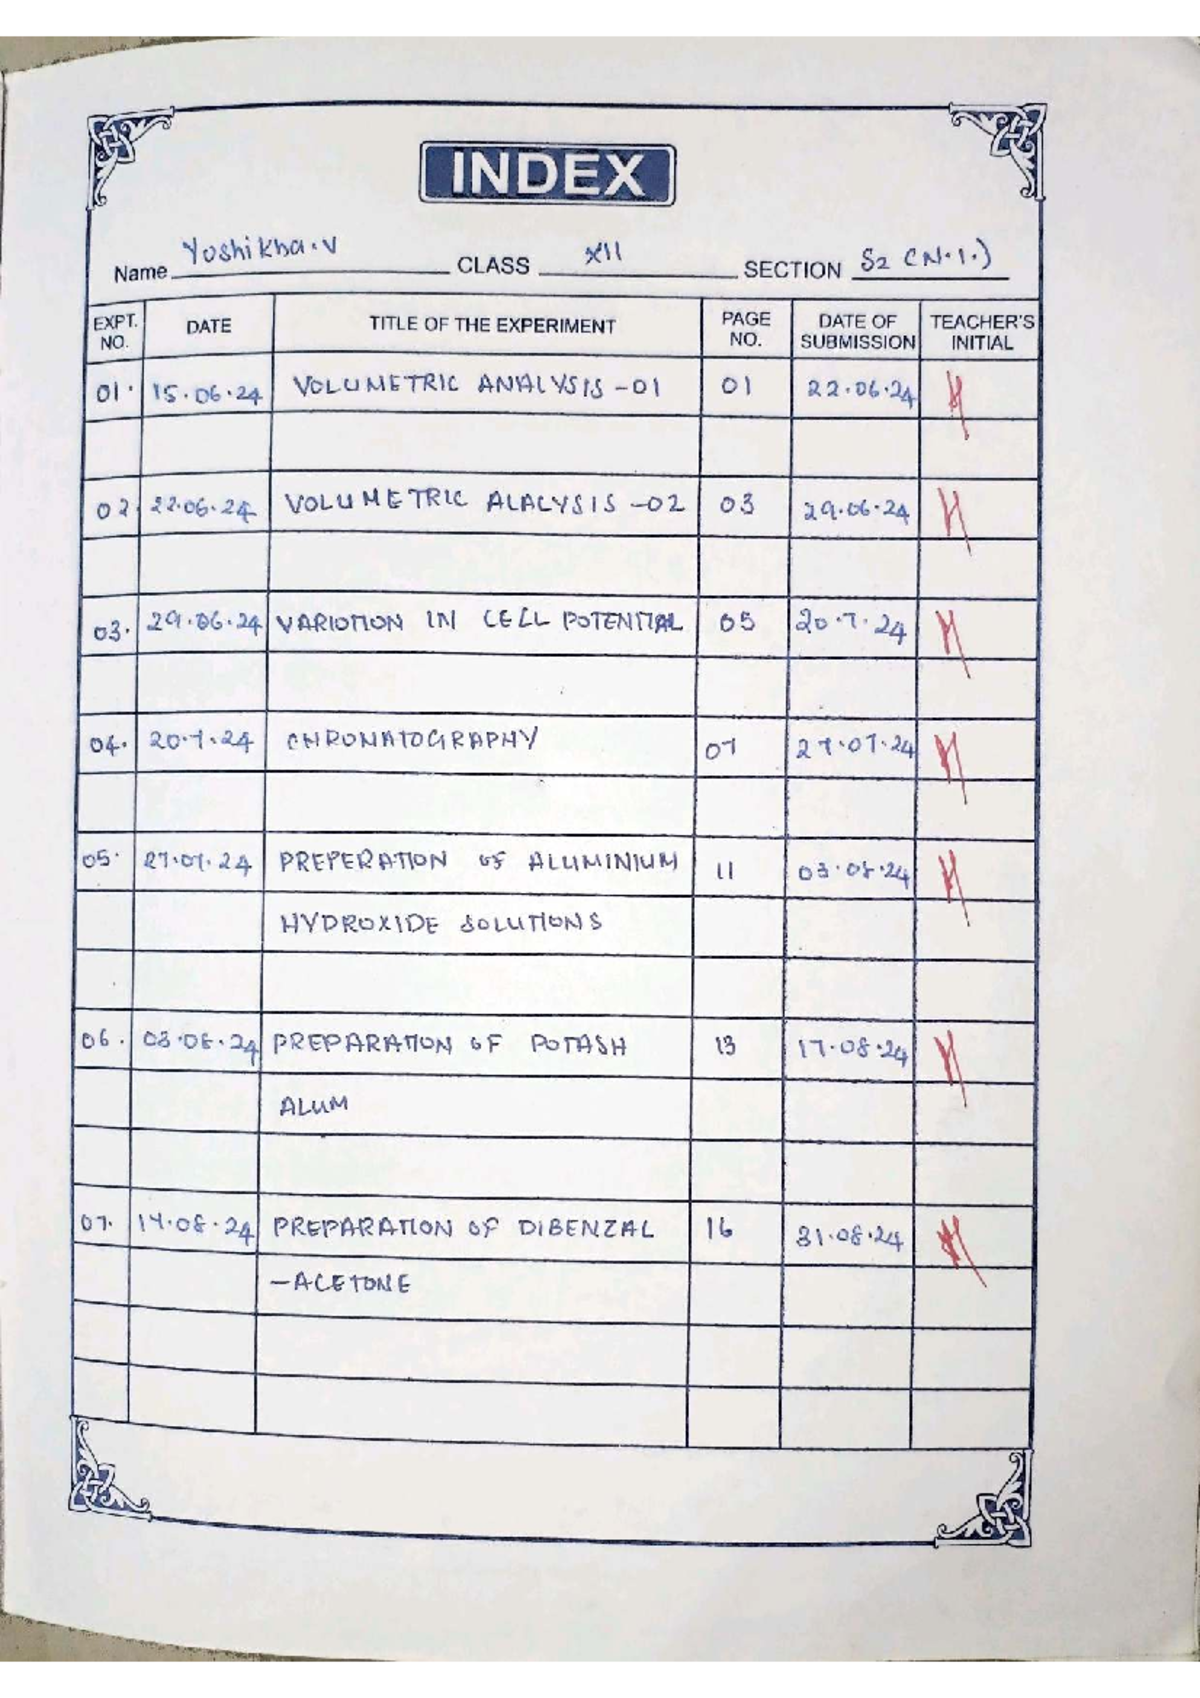 INDEX
Name Yoshikha.V CLASS XII SECTION S2 (N.I.)
EXPT. NO. DATE TITLE OF THE EXPERIMENT PAGE NO. DATE OF SUBMISSION TEACHER'S INITIAL
01. 15.06.24 VOLUMETRIC ANALYSIS -01 01 22.06.24
02. 22.06.24 VOLUMETRIC ALALYSIS -02 03 29.06.24
03. 29.06.24 VARIOTION IN CELL POTENTIAL 05 20.7.24
04. 20.7.24 CHROMATOGRAPHY 07 27.07.24
05. 27.07.24 PREPERATION OF ALUMINIUM 11 03.08.24
HYDROXIDE SOLUTIONS
06. 03.08.24 PREPARATION OF POTASH 13 17.08.24
ALUM
07. 17.08.24 PREPARATION OF DIBENZAL 16 31.08.24
-ACETONE